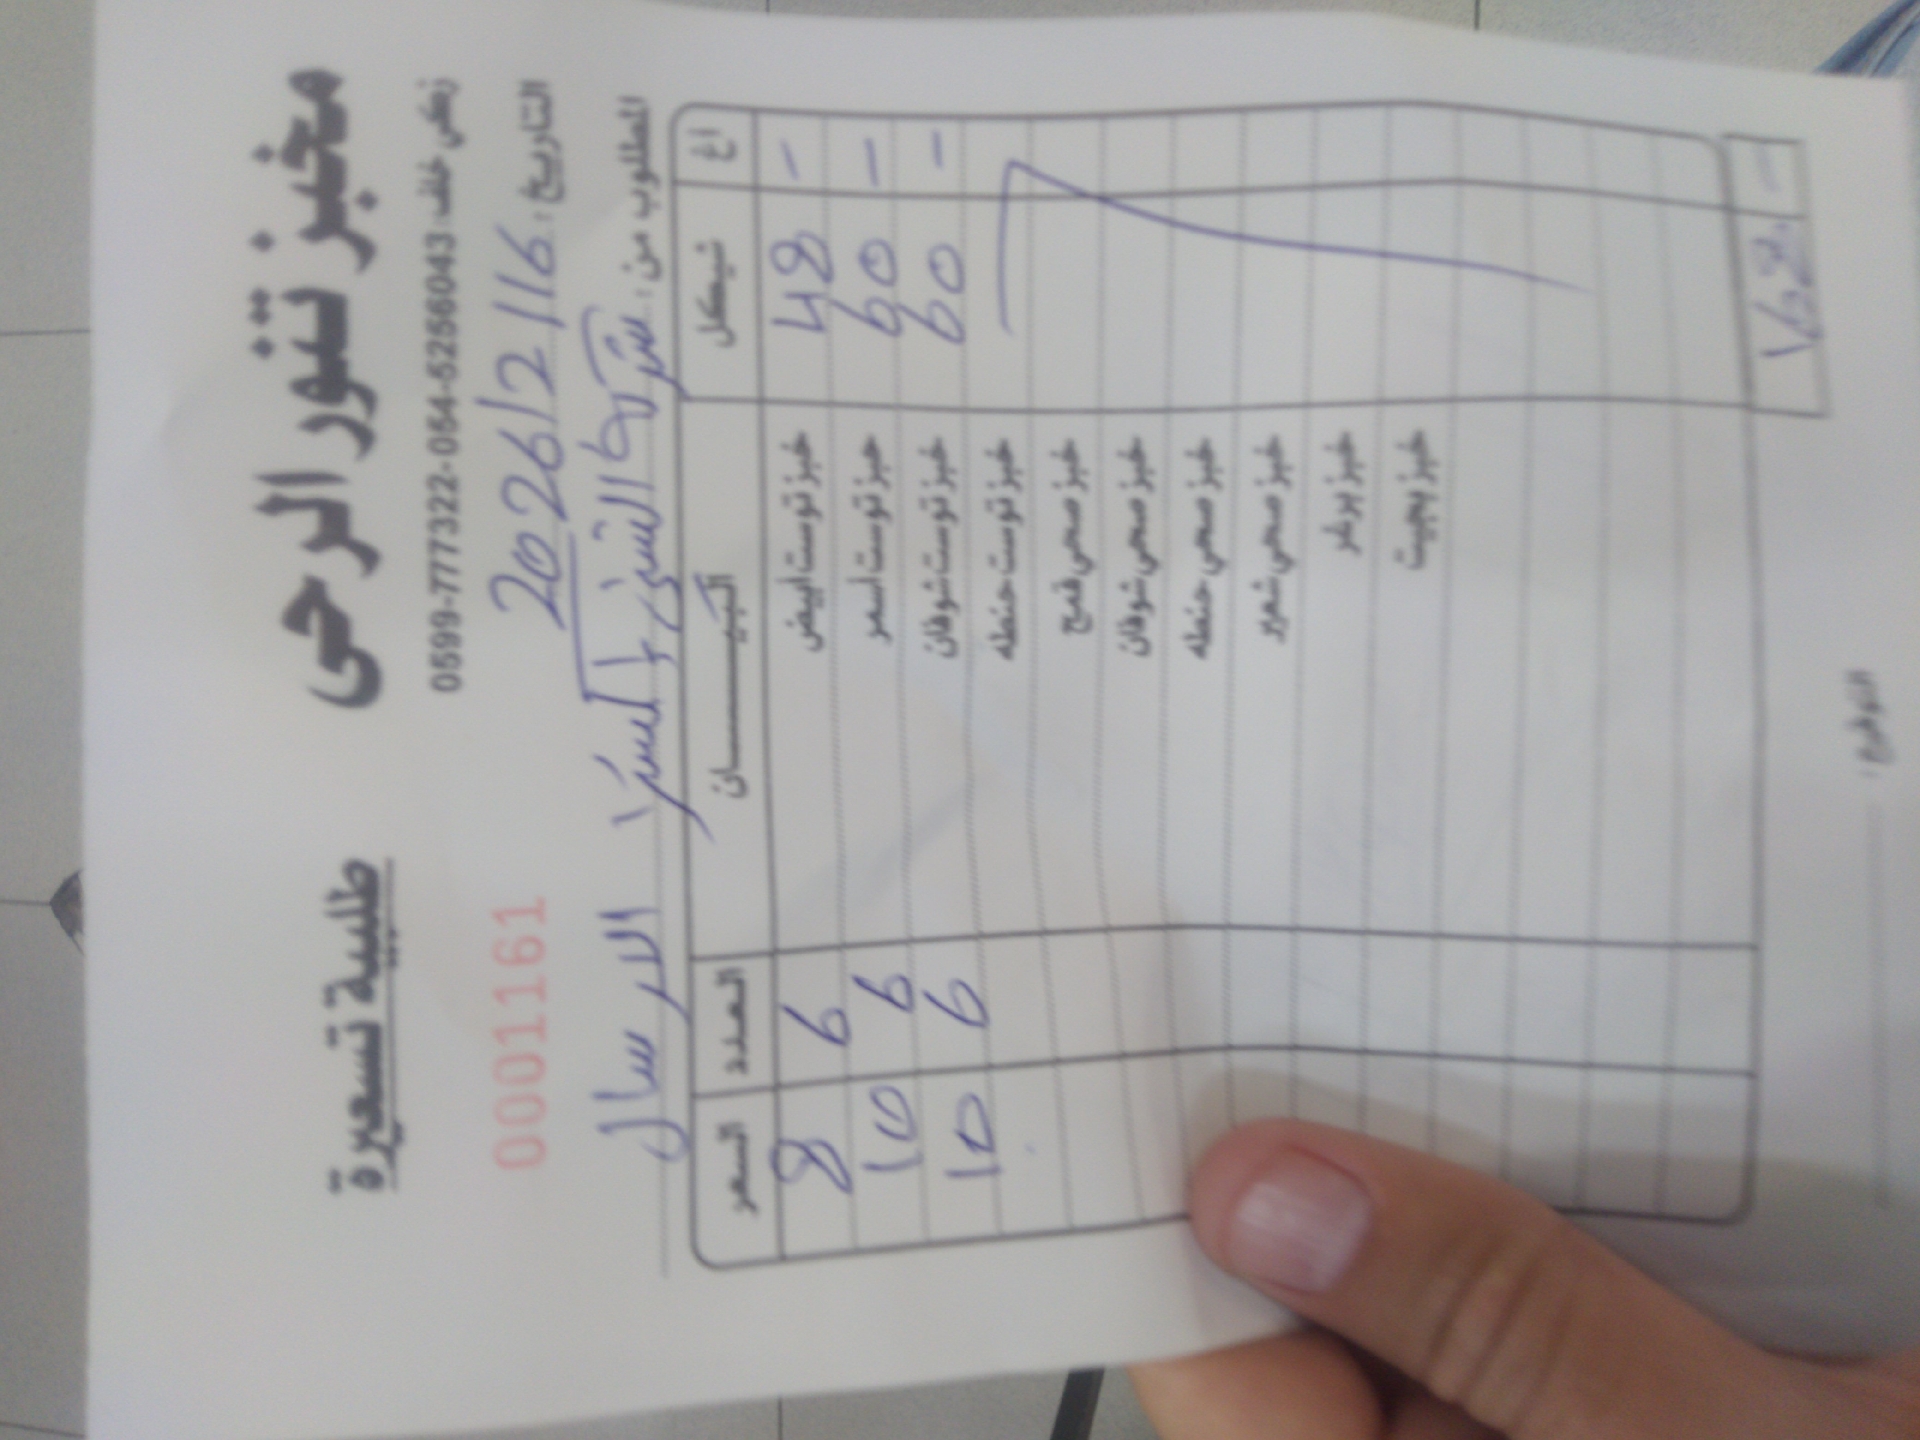 مخبز تنور الرحى
طلبية تسعيرة
زكي خلف: 0599-777322-054-5256043
التاريخ: 2026/2/16
0001161
المطلوب من: شركة الشني إكسترا الارسال
اغ شيكل البيــــــــان العدد السعر
- 48 خبز توست ابيض 6 8
- 60 خبز توست اسمر 6 10
- 60 خبز توست شوفان 6 10
خبز توست حنطه
خبز صحي قمح
خبز صحي شوفان
خبز صحي حنطه
خبز صحي شعير
خبز برغر
خبز بجيت
- 168
التوقيع: